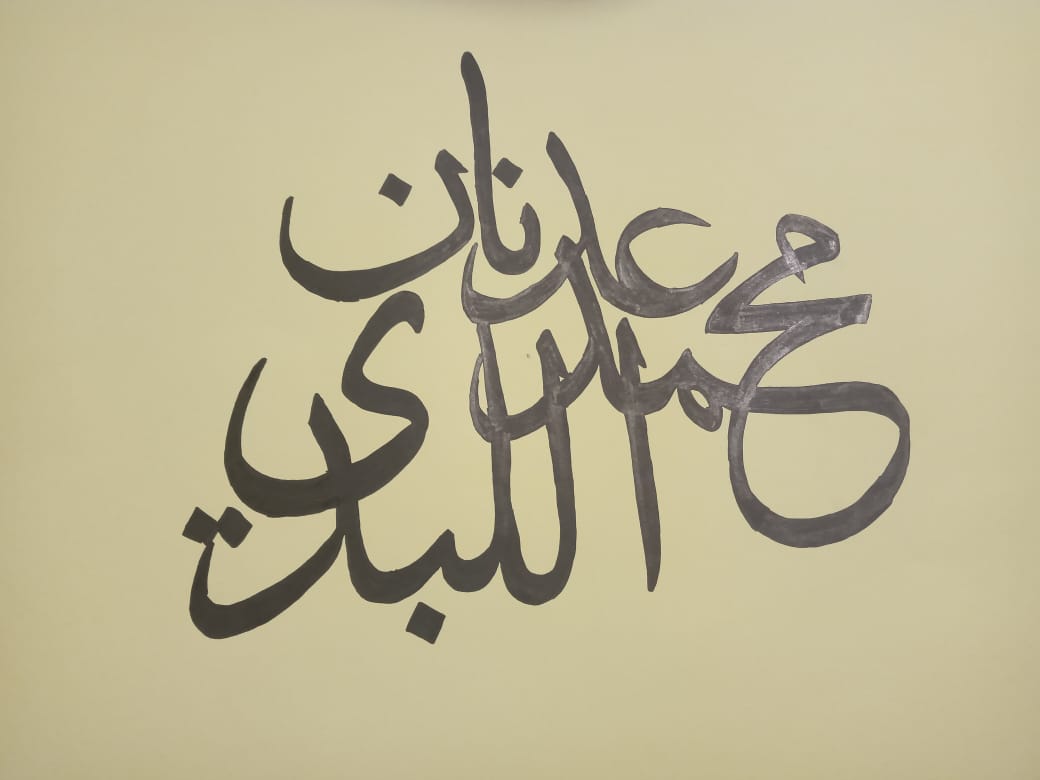 محمد عدنان اللبدي